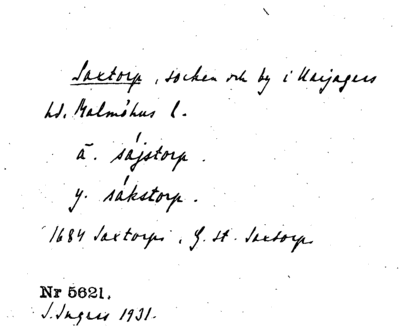 Saxtorp, socken och by i Harjagers
hd. Malmöhus l.
ä. såjstorp.
y. såkstorp.
1684 Saxtorps. G. st. Saxtorp
Nr 5621.
I. Ingers 1931.